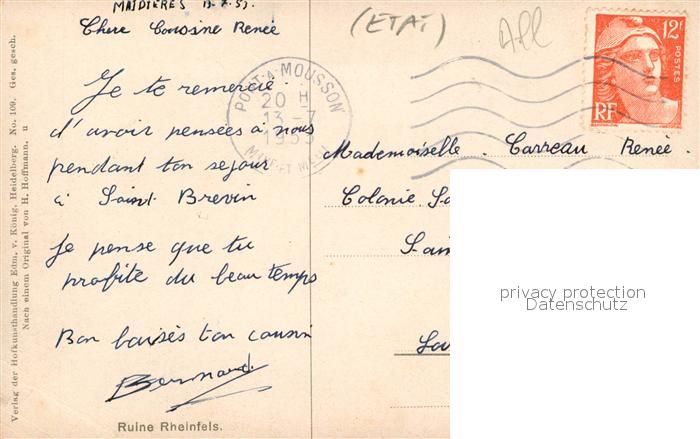 MAIDIERES 13.7.53.
Chere Cousine Renée
Je te remercie
d'avoir pensées à nous
pendant ton sejour
à Saint Brevin
Je pense que tu
profite du beau temps
Bon baisés ton cousin
Bernard
Ruine Rheinfels.
Verlag der Hofkunsthandlung Edm. v. König, Heidelberg. No. 109. Ges. gesch.
Nach einem Original von H. Hoffmann.
(ETAT)
All
PONT-A-MOUSSON
20 H
13-7
1953
12f
POSTES
RF
Mademoiselle Carreau Renée
Colonie
privacy protection
Datenschutz